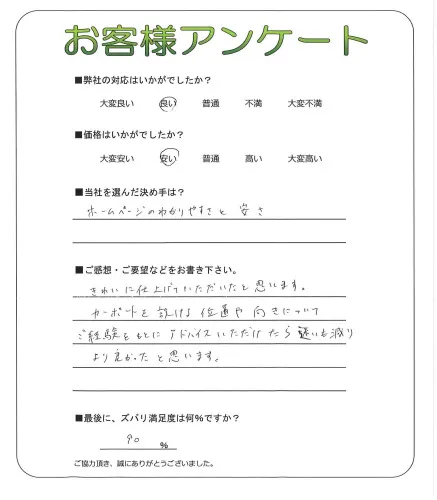 お客様アンケート
■弊社の対応はいかがでしたか？
大変良い 良い 普通 不満 大変不満
■価格はいかがでしたか？
大変安い 安い 普通 高い 大変高い
■当社を選んだ決め手は？
ホームページのわかりやすさと 安さ
■ご感想・ご要望などをお書き下さい。
きれいに仕上げていただいたと思います。
カーポートを設ける位置や向きについて
ご経験をもとにアドバイスいただけたら迷いも減り
より良かったと思います。
■最後に、ズバリ満足度は何%ですか？
90 %
ご協力頂き、誠にありがとうございました。